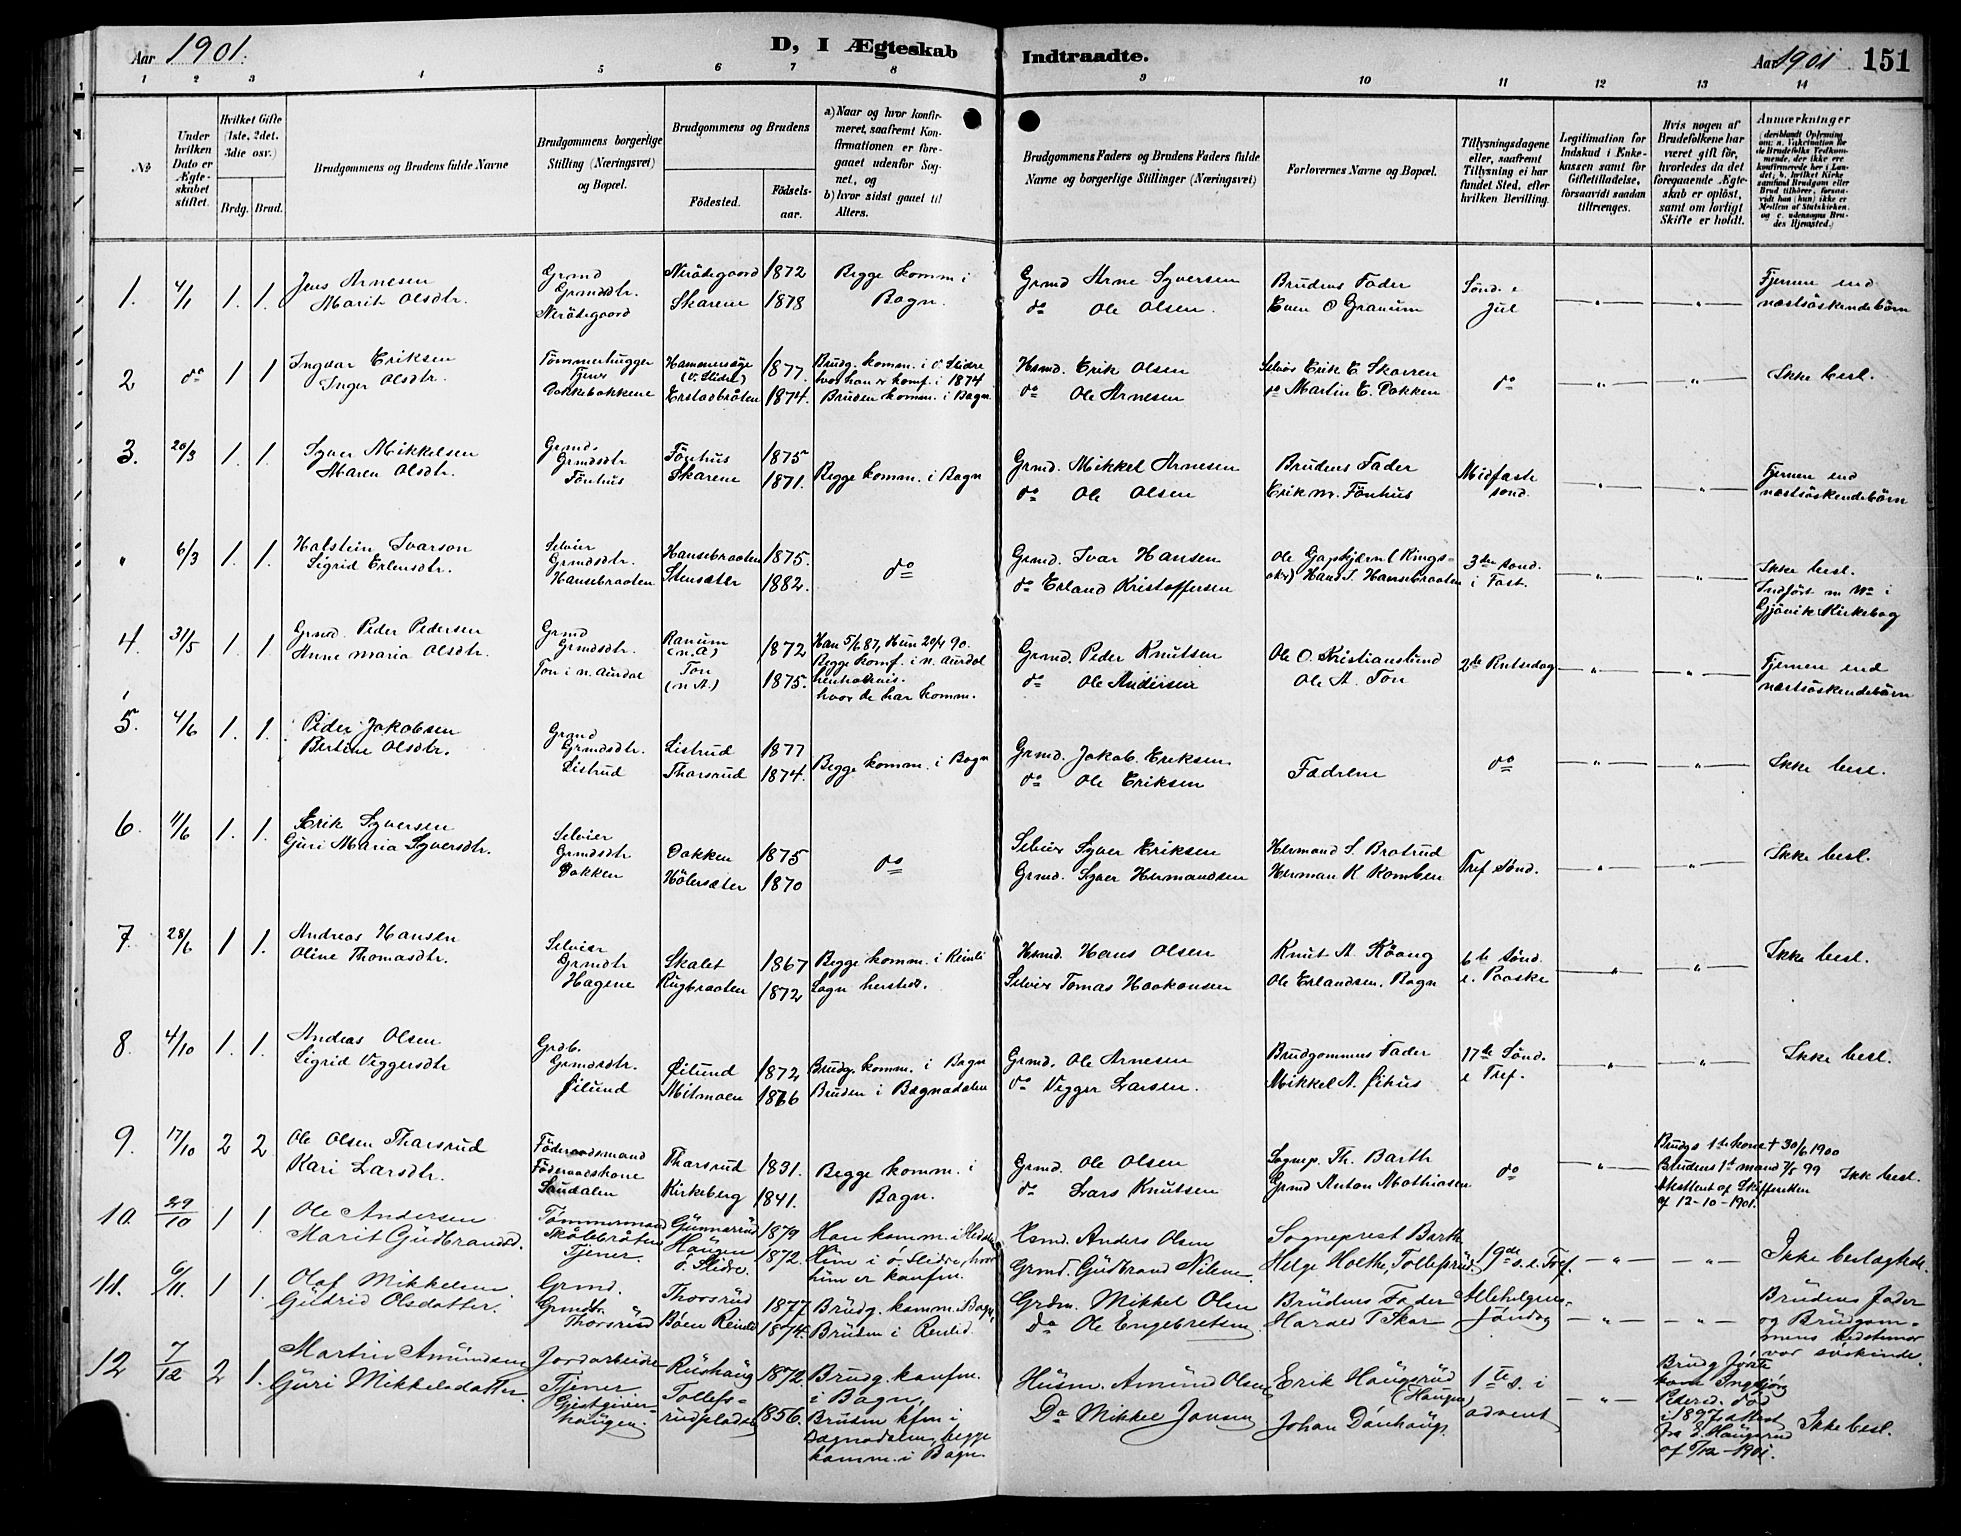 Aar 1901.
D, I Ægteskab
Indtraadte.
Aar 1901
151
1 2 3 4 5 6 7 8 9 10 11 12 13 14
No
Under hvilken Dato er Ægteskabet stiftet.
Hvilket Gifte (1ste, 2det, 3die osv.)
Brdg. Brud.
Brudgommens og Brudens fulde Navne
Brudgommens borgerlige Stilling (Næringsvei) og Bopæl.
Brudgommens og Brudens
Fødested.
Fødselsaar.
a) Naar og hvor konfirmeret, saafremt Konfirmationen er foregaaet udenfor Sognet, og
b) hvor sidst gaaet til Alters.
Brudgommens Faders og Brudens Faders fulde Navne og borgerlige Stillinger (Næringsvei)
Forlovernes Navne og Bopæl.
Tillysningsdagene eller, saafremt Tillysning ei har fundet Sted, efter hvilken Bevilling.
Legitimation for Indskud i Enkekassen samt for Giftetilladelse, forsaavidt saadan tiltrænges.
Hvis nogen af Brudefolkene har været gift før, hvorledes da det foregaaende Ægteskab er opløst, samt om lovligt Skifte er holdt.
Anmærkninger
1. 4/1 1. 1. Jens Arnesen
Marit Olsdtr.
Grmd
Grmdsdtr.
Nerødegaard
Nerødegaard 1872
Skarene 1878
Begge komm i
Bagn.
Grmd Arne Syversen
do Ole Olsen.
Brudens Fader
Even O Granum
Sønd. e
Jul
Fjernere end
næstsøskendebörn
2 do 1 1 Ingvar Eriksen
Inger Olsdtr.
Tømmerhugger
Tjener
Dokkebakkene
(V. Slidre) 1877.
Erstadbråten 1874.
Brudg. komm. i V. Slidre
hvor han er konf. i 1874
Bruden komm. i Bagn
Hsmd. Erik Olsen
do Ole Arnesen
Selvei Erik E Skaren
do Martin E. Dokken
do
Ikke besl.
3. 20/3 1. 1. Syver Mikkelsen
Maren Olsdtr.
Grmd.
Grmdsdtr
Fönhus
Fönhus 1875
Skarene 1871.
Begge komm. i Bagn
Grmd. Mikkel Arnesen
do Ole Olsen
Brudens Fader
Erik M. Fönhus
Midfaste
sønd.
Fjernere end
næstsøskendebörn
" 6/3 1. 1. Halstein Ivarson
Sigrid Erlensdtr.
Selveier
Grmdsdtr.
Hansebraaten
Hansebraaten 1875.
Stensæter 1882.
do
Grmd. Ivar Hansen
do Erland Kristoffersen
Ole Gapskjærn (Ringsaker) Hans I. Hansebraaten
3die sønd.
i Fast.
Ikke besl.
Indført m No i
Gjövik Kirkebog
4. 31/5 1. 1. Grmd. Peder Pedersen
Anne Maria Olsdtr.
Grmd
Grmdsdtr.
Ton i n. Aurdal
Ranum
(n. A) 1872
Ton
(n A.) 1875.
Han 5/6 87, Hun 20/4 90.
Begge komf. i n. Aurdal
hvor de har komm.
Grmd. Peder Knutsen
do Ole Andersen
Ole O. Kristianslund
Ole A. Ton
2de Pintsedag
Fjernere end
næstsøskendebörn
5. 4/6 1. 1. Peder Jakobsen
Bertine Olsdtr.
Grmd
Grmdsdtr.
Listrud
Listrud 1877
Tharsrud 1874.
Begge komm. i Bagn
Grmd. Jakob Eriksen
do Ole Eriksen
Fædrene
do
Ikke besl.
6. 11/6 1. 1. Erik Syversen
Guri Maria Syversdtr.
Selveier
Grmdsdtr
Dokken
Dokken 1875
Hölersæter 1870
do
Selveier Syver Eriksen
Grmd. Syver Hermandsen
Hermand S. Bratrud
Herman K Komben
Tref sønd.
Ikke besl.
7. 28/6 1 1. Andreas Hansen
Oline Thomasdtr.
Selveier
Grmdtr
Hagene
Skalet 1867
Rugbraaten 1872
Begge komm. i Reinli
Sogn hersteds.
Hsmd. Hans Olsen
Selveier Tomas Haakonsen
Knut A. Röang
Ole Erlandsen. Bagn
6te sønd.
e. Paaske
Ikke besl.
8. 4/10 1. 1. Andreas Olsen
Sigrid Viggersdtr
Grdb.
Grmdsdtr.
Øilund
Øilund 1872
Midmoen 1866
Brudg. komm. i Bagn
Bruden i Bagnadalen
Grmd. Ole Arnesen
do Vigger Larsen.
Brudgommens Fader
Mikkel A. Øihus
17de Sønd.
e Tref.
Ikke besl.
9. 17/10 2 2 Ole Olsen Tharsrud
Kari Larsdtr.
Föderaadsmand
Föderaadskone
Sandalen
Tharsrud 1831.
Kirkeberg 1841.
Begge komm. i
Bagn.
Grmd. Ole Olsen
do Lars Knutsen
Sognep. Th. Barth
Grmd Anton Mathiasen
do
Brudgs 1te kone + 30/6 1900
Brudens 1st mand 7/5 99
Attesteret af Skifteretten
af 12-10-1901.
Ikke besl.
10. 29/10 1 1. Ole Andersen
Marit Gudbrandsd.
Tömmermand
Skålebråten
Tjener
Gunnerud 1879
Haugen 1872.
ö. Slidre.
Han komm. i Hedalen
Hun i ö. Slidre, hvor
hun er konfm.
Hsmd. Anders Olsen
Grmd. Gudbrand Nilsen
Sogneprest Barth
Helge Holthe, Tollefsrud
19de s. e. Tref.
Ikke beslægtede.
11. 6/11. 1 1. Olaf Mikkelsen
Gudrid Olsdatter.
Grmd.
Grmdtr.
Thorsrud
Thorsrud 1877
Böen Reinlid 1874.
Brudg. komm. Bagn,
Bruden i Reinlid.
Grdm. Mikkel Olsen
Do Ole Engebretsen
Brudens Fader
Harald T Skar
Allehelgens-
söndag
Brudens Fader
og Brudgom-
mens bedstemor
var söskende.
12 7/12 2 1. Martin Amundsen
Guri Mikkelsdatter
Jordarbeider
Tjener
Gjestgiver-
haugen.
Rushaug 1872.
Tollefs-
rudpladsen 1856.
Brudg. konfm.
i Bagn,
Bruden kfm i
Bagnadalen, begge
komm. i Bagn
Husm. Amund Olsen
Do Mikkel Jonsen
Erik Haugerud
(Haugen)
Johan Dönhaug,
1te s. i
advent
Brudg. förste
kone Ingebjörg
Pedersd. död
i 1897, attest
fra E. Haugerud
af 5/12 - 1901.
Ikke besl.